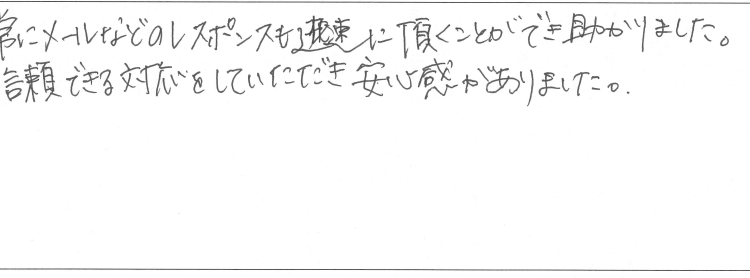 常にメールなどのレスポンスも迅速に頂くことができ助かりました。
信頼できる対応をしていただき安心感がありました。